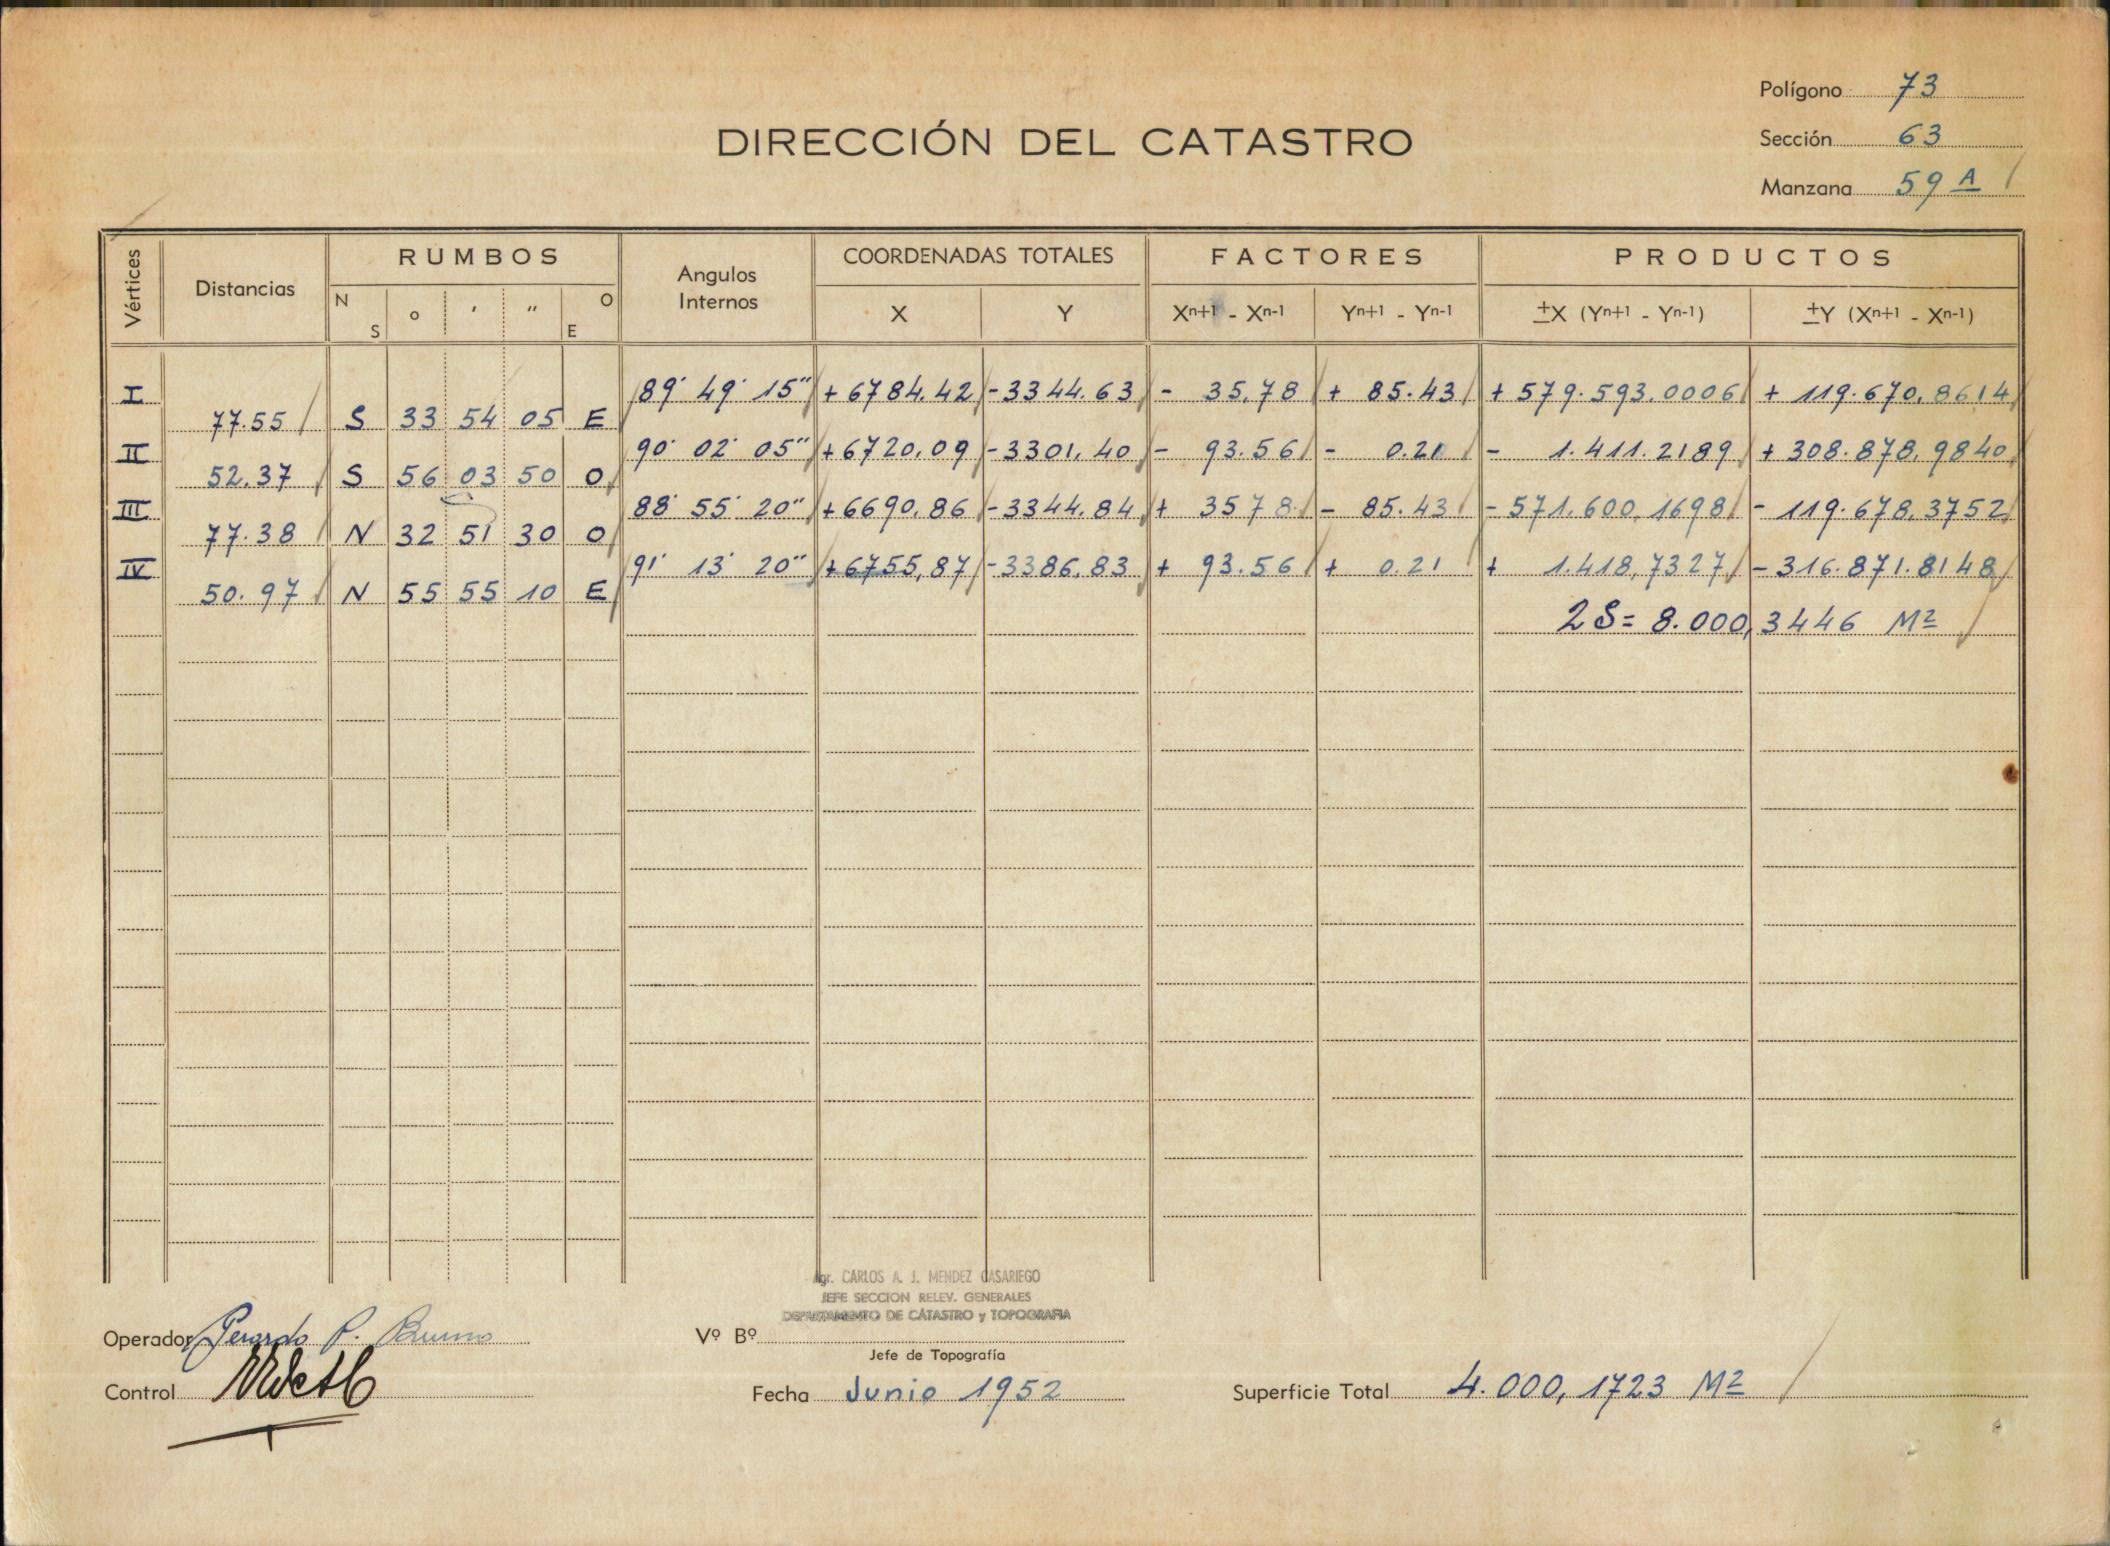 Polígono 73
DIRECCIÓN DEL CATASTRO
Sección 63
Manzana 59 A
Vértices Distancias RUMBOS Angulos Internos COORDENADAS TOTALES FACTORES PRODUCTOS
N S o ' " O E X Y Xn+1 - Xn-1 Yn+1 - Yn-1 ±X (Yn+1 - Yn-1) ±Y (Xn+1 - Xn-1)
I 89° 49' 15" +6784,42 -3344.63 - 35,78 + 85.43 + 579.593.0006 + 119.670,8614
77.55 S 33 54 05 E
II 90° 02' 05" +6720,09 -3301,40 - 93.56 - 0.21 - 1.411.2189 + 308.878,9840
52.37 S 56 03 50 O
III 88° 55' 20" +6690,86 -3344.84 + 3578 - 85.43 - 571.600,1698 - 119.678,3752
77.38 N 32 51 30 O
IV 91° 13' 20" +6755,87 -3386,83 + 93.56 + 0.21 + 1.418,7327 - 316.871.8148
50.97 N 55 55 10 E
2S= 8.000,3446 M2
Agr. CARLOS A. J. MENDEZ CASARIEGO
JEFE SECCION RELEV. GENERALES
DEPARTAMENTO DE CATASTRO y TOPOGRAFIA
Operador Gerardo P. Bruno
Vº Bº
Jefe de Topografía
Control
Fecha Junio 1952
Superficie Total 4.000,1723 M2